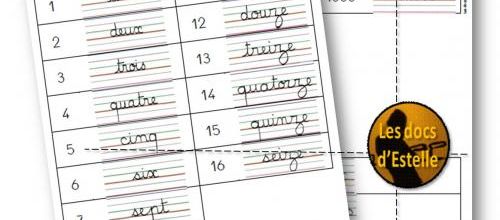 1
2 deux
3 trois
4 quatre
5 cinq
6 six
7 sept
12 douze
13 treize
14 quatorze
15 quinze
16 seize
Les docs
d'Estelle